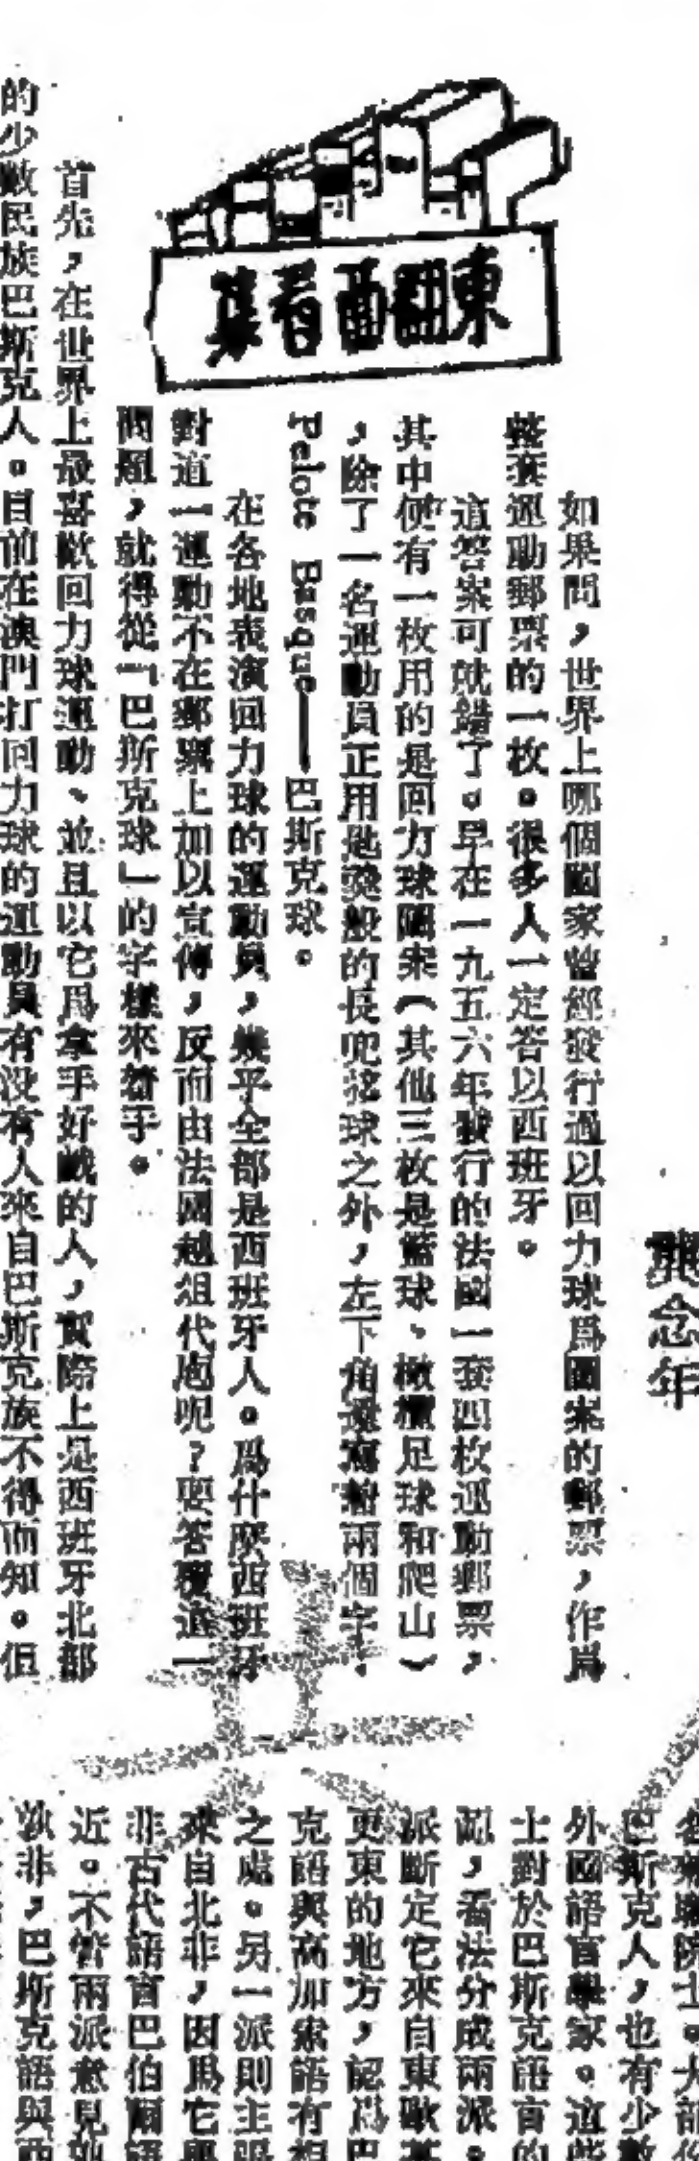 東翻西看集
如果問，世界上哪個國家曾經發行過以回力球爲圖案的郵票，作爲
整套運動郵票的一枚。很多人一定答以西班牙。
這答案可就錯了。早在一九五六年發行的法國一套四枚運動郵票，
其中便有一枚用的是回力球圖案（其他三枚是籃球、橄欖足球和爬山）
，除了一名運動員正用匙羹般的長兜接球之外，左下角還寫着兩個字：
Pelote Basque——巴斯克球。
在各地表演回力球的運動員，幾乎全部是西班牙人。爲什麼西班牙
對這一運動不在郵票上加以宣傳，反而由法國越俎代庖呢？要答覆這一
問題，就得從「巴斯克球」的字樣來着手。
首先，在世界上最喜歡回力球運動、並且以它爲拿手好戲的人，實際上是西班牙北部
的少數民族巴斯克人。目前在澳門打回力球的運動員有没有人來自巴斯克族不得而知。但
念年
巴斯克人，也有少數
外國語言學家。這些
士對於巴斯克語言的
源，看法分成兩派。
派斷定它來自東歐甚
更東的地方，認爲巴
克語與高加索語有相
之處。另一派則主張
來自北非，因爲它與
非古代語言巴伯爾語
近。不管兩派意見孰
孰非，巴斯克語與西